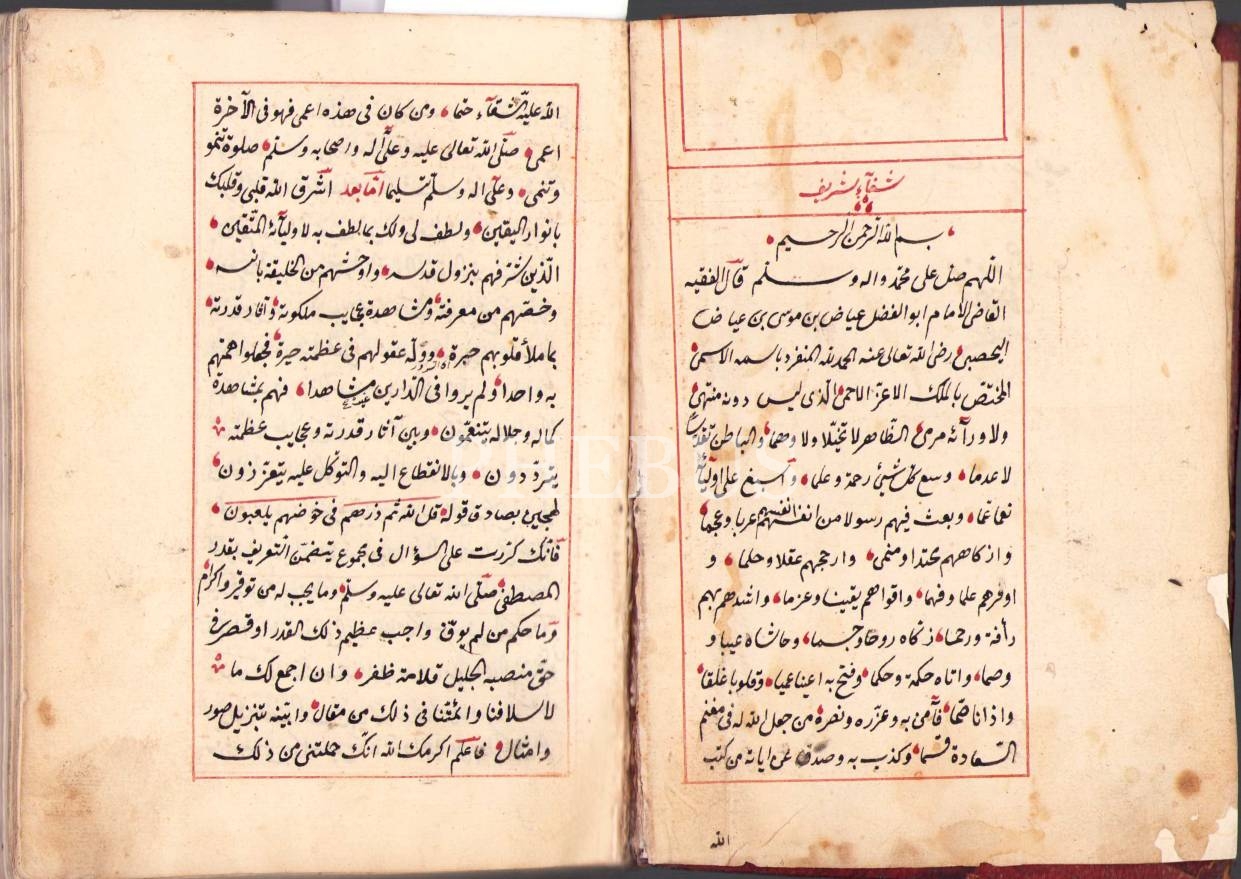 شفاء شريف
بسم الله الرحمن الرحيم
اللهم صل على محمد واله وسلم قال الفقيه
القاضي الامام ابو الفضل عياض بن موسى بن عياض
اليحصبي رضى الله تعالى عنه الحمد لله المنفرد باسمه الاسمى
المختص بالملك الاعز الاحمى الذى ليس دونه منتهى
ولا ورآئه مرمى الظاهر لا تخيلا ولا وهما والباطن تقدسا
لا عدما وسع كل شئ رحمة وعلما واسبغ على اوليآئه
نعما عما وبعث فيهم رسولا من انفسهم انفسهم عربا وعجما
وازكاهم محتدا ومنمى وارجحهم عقلا وحلما و
اوفرهم علما وفهما واقواهم يقينا وعزما واشدهم بهم
رأفة ورحما زكاه روحا وجسما وحاشاه عيبا و
وصما واتاه حكمة وحكما وفتح به اعينا عميا وقلوبا غلفا
واذانا صما فآمن به وعزره ونصره من جعل الله له فى مغنم
السعادة قسما وكذب به وصدف عن اياته من كتب
الله
الله عليه الشقآء حتما ومن كان فى هذه اعمى فهو فى الآخرة
اعمى صلى الله تعالى عليه وعلى اله واصحابه وسلم صلوة تنمو
وتنمى وعلى اله وسلم تسليما اما بعد اشرق الله قلبى وقلبك
بانوار اليقين ولطف لى ولك بما لطف به لاوليآئه المتقين
الذين شرفهم بنزول قدسه واوحشهم من الخليقة بانسه
وخصهم من معرفته ومشاهدة عجايب ملكوته واثار قدرته
بما ملأ قلوبهم حبرة ووله عقولهم فى عظمته حيرة فجعلوا همهم
به واحدا ولم يروا فى الدارين مشاهدا فهم بمشاهدة
كماله وجلاله يتنعمون وبين آثار قدرته وعجايب عظمته
يترددون وبالانقطاع اليه والتوكل عليه يتعززون
لهجين بصادق قوله قل الله ثم ذرهم فى خوضهم يلعبون
فانك كررت على السؤال فى مجموع يتضمن التعريف بقدر
المصطفى صلى الله تعالى عليه وسلم وما يجب له من توقير واكرام
وما حكم من لم يوف واجب عظيم ذلك القدر او قصر فى
حق منصبه الجليل قلامة ظفر وان اجمع لك ما
لاسلافنا وائمتنا فى ذلك من مقال وابينه بتنزيل صور
وامثال فاعلم اكرمك الله انك حملتنى من ذلك
PHEBUS